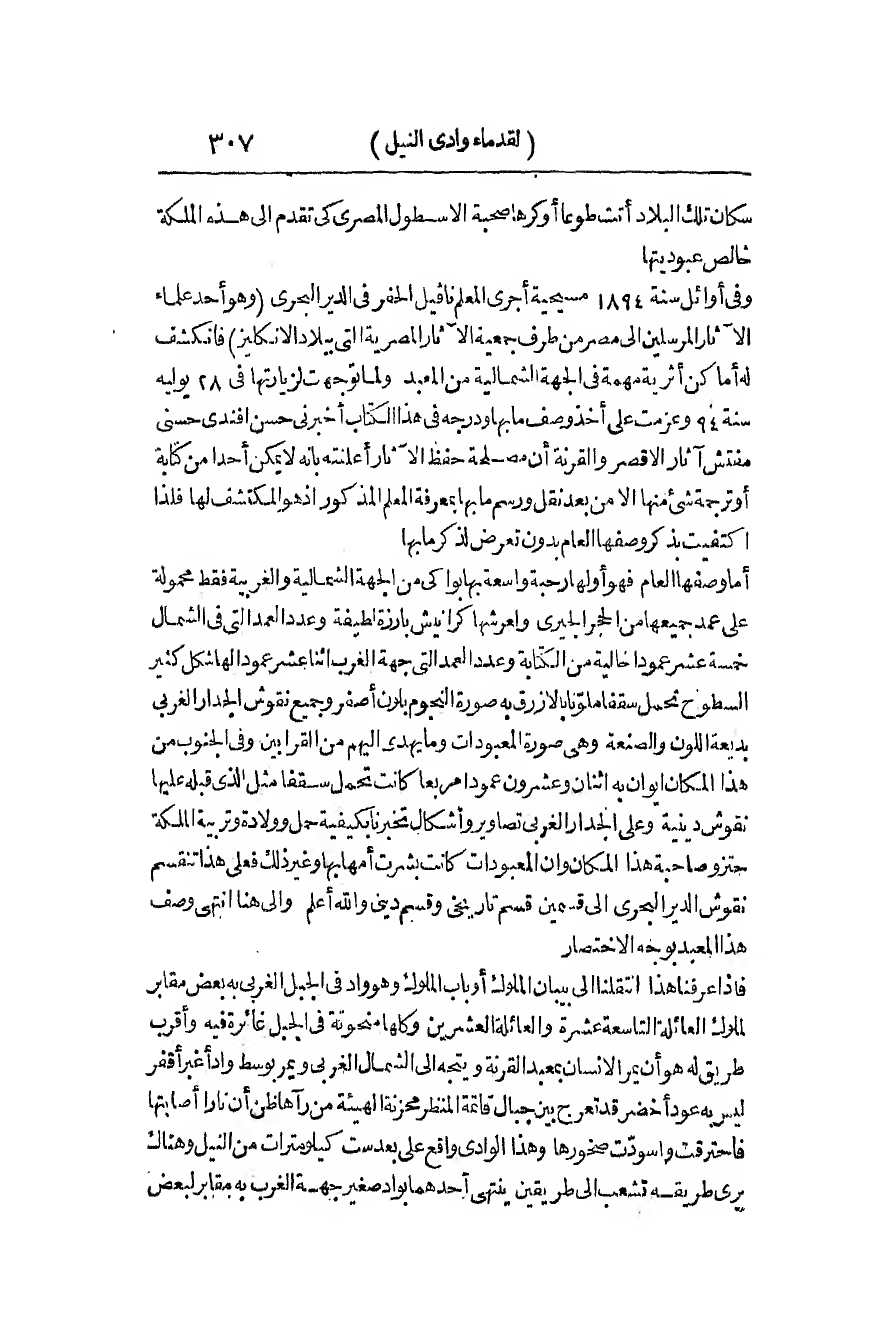 ( لقدماء وادى النيل ) ٣٠٧
سكان تلك البلاد أتت طوعا أوكرها صحبة الاسطول المصرى كى تقدم الى هذه الملكة
خالص عبوديتها
وفى أوائل سنة ١٨٩٤ مسيحية أجرى المعلم نافيل الحفر فى الدير البحرى (وهو أحد علماء
الآثار المرسلين الى مصر من طرف جمعية الآثار المصرية التى ببلاد الانكليز) فانكشف
له أماكن أثرية مهمة فى الجهة الشمالية من المعبد ولما توجهت لزيارتها فى ٢٨ يوليه
سنة ٩٤ وعزمت على أخذ وصف مابها ودرجه فى هذا الكتاب أخبرنى حسن افندى حسنى
مفتش آثار الاقصر والقرنة أن مصلحة حفظ الآثار أعلنته بانه لايمكن أحدا من كتابة
أوترجمة شئ منها الا من بعد نقل ورسم مابها بمعرفة المعلم المذكور اذ هو المكتشف لها فلذا
اكتفيت بذكر وصفها العام بدون تعرض لذكر مابها
أما وصفها العام فهو أولها رحبة واسعة بها بواكى من الجهة الشمالية والغربية فقط محمولة
على عمد جميعها من الحجر الجيرى ولعرشها كرانيش بارزة لطيفة وعدد العمد التى فى الشمال
خمسة عشر عمودا خالية من الكتابة وعدد العمد التى جهة الغرب اثنا عشر عمودا لها شكل كثير
السطوح تحمل سقفا ملونا بالازرق به صورة النجوم بلون أصفر وجميع نقوش الجدار الغربى
بديعة اللون والصنعة وهى صورة المعبودات ومايهدى اليهم من القرابين وفى الجنوب من
هذا المكان ايوان به اثنان وعشرون عمودا مربعا كانت تحمل سقفا مثل الذى قبله عليها
نقوش دينية وعلى الجدار الغربى تصاوير وأشكال تخبرنا بكيفية حمل وولادة وتربية الملكة
حتزو صاحبة هذا المكان وان المعبودات كانت بشرت أمها بها وغير ذلك فعلى هذا تنقسم
نقوش الدير البحرى الى قسمين قسم تاريخى وقسم دينى والله أعلم والى هنا انتهى وصف
هذا المعبد بوجه الاختصار
فاذا عرفنا هذا انتقلنا الى بيبان الملوك أوباب الملوك وهو واد فى الجبل الغربى به بعض مقابر
لملوك العائلة التاسعة عشرة والعائلة العشرين وكلها منحوتة فى الجبل غائرة فيه وأقرب
طريق له هو أن يمر الانسان بمعبد القرنة ويتجه الى الشمال الغربى ويمر بوسط واد أغبر أقفر
ليس به عود أخضر قد تعرج بين جبال قاتمة المنظر محزنة الهيئة من رآها ظن أن نارا أصابتها
فاحترقت واسودت صخورها وهذا الوادى واقع على بعد ست كيلومترات من النيل وهناك
يرى طريقه تشعب الى طريقين ينتهى أحدهما بواد صغير جهة الغرب به مقابر لبعض